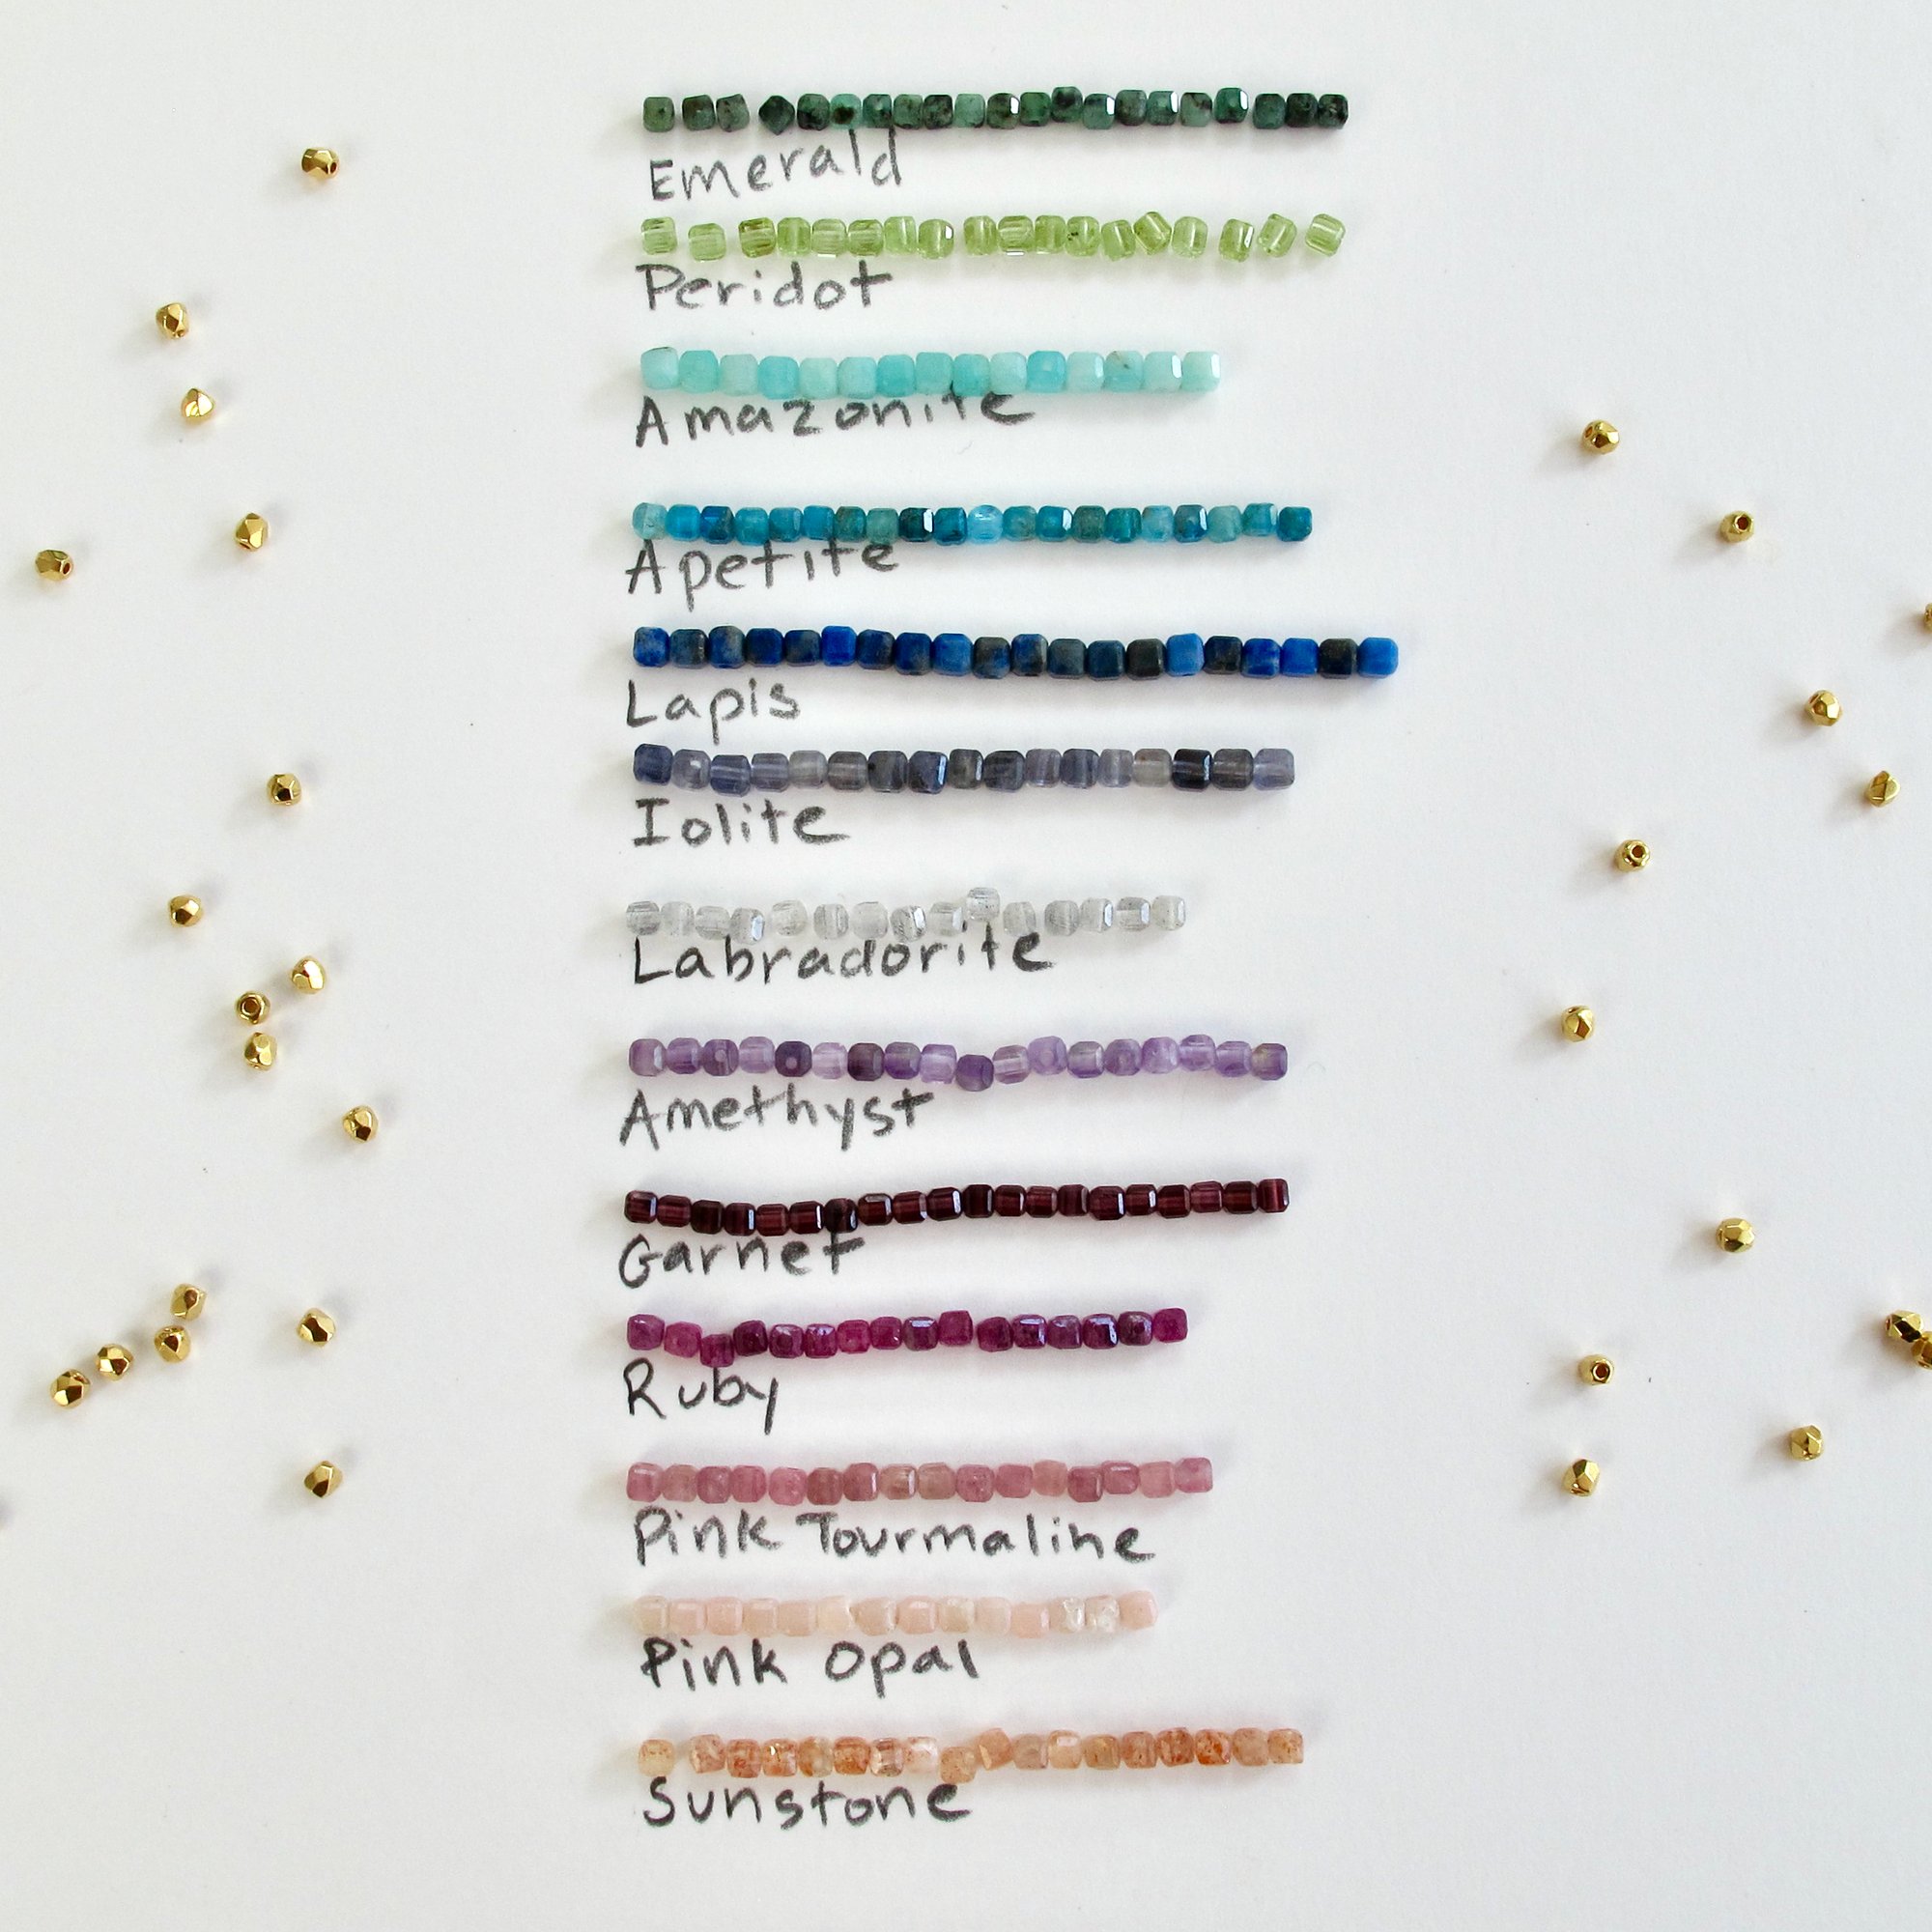 Emerald
Peridot
Amazonite
Apetite
Lapis
Iolite
Labradorite
Amethyst
Garnet
Ruby
Pink Tourmaline
Pink Opal
Sunstone